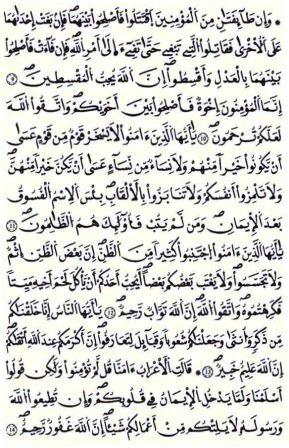 * وَإِن طَآئِفَتَانِ مِنَ ٱلْمُؤْمِنِينَ ٱقْتَتَلُوا۟ فَأَصْلِحُوا۟ بَيْنَهُمَا فَإِنۢ بَغَتْ إِحْدَىٰهُمَا
عَلَى ٱلْأُخْرَىٰ فَقَٰتِلُوا۟ ٱلَّتِى تَبْغِى حَتَّىٰ تَفِىٓءَ إِلَىٰٓ أَمْرِ ٱللَّهِ فَإِن فَآءَتْ فَأَصْلِحُوا۟
بَيْنَهُمَا بِٱلْعَدْلِ وَأَقْسِطُوٓا۟ إِنَّ ٱللَّهَ يُحِبُّ ٱلْمُقْسِطِينَ ٩
إِنَّمَا ٱلْمُؤْمِنُونَ إِخْوَةٌ فَأَصْلِحُوا۟ بَيْنَ أَخَوَيْكُمْ وَٱتَّقُوا۟ ٱللَّهَ
لَعَلَّكُمْ تُرْحَمُونَ ١٠ يَٰٓأَيُّهَا ٱلَّذِينَ ءَامَنُوا۟ لَا يَسْخَرْ قَوْمٌ مِّن قَوْمٍ عَسَىٰٓ
أَن يَكُونُوا۟ خَيْرًا مِّنْهُمْ وَلَا نِسَآءٌ مِّن نِّسَآءٍ عَسَىٰٓ أَن يَكُنَّ خَيْرًا مِّنْهُنَّ
وَلَا تَلْمِزُوٓا۟ أَنفُسَكُمْ وَلَا تَنَابَزُوا۟ بِٱلْأَلْقَٰبِ بِئْسَ ٱلِٱسْمُ ٱلْفُسُوقُ
بَعْدَ ٱلْإِيمَٰنِ وَمَن لَّمْ يَتُبْ فَأُو۟لَٰٓئِكَ هُمُ ٱلظَّٰلِمُونَ ١١
يَٰٓأَيُّهَا ٱلَّذِينَ ءَامَنُوا۟ ٱجْتَنِبُوا۟ كَثِيرًا مِّنَ ٱلظَّنِّ إِنَّ بَعْضَ ٱلظَّنِّ إِثْمٌ
وَلَا تَجَسَّسُوا۟ وَلَا يَغْتَب بَّعْضُكُم بَعْضًا أَيُحِبُّ أَحَدُكُمْ أَن يَأْكُلَ لَحْمَ أَخِيهِ مَيْتًا
فَكَرِهْتُمُوهُ وَٱتَّقُوا۟ ٱللَّهَ إِنَّ ٱللَّهَ تَوَّابٌ رَّحِيمٌ ١٢ يَٰٓأَيُّهَا ٱلنَّاسُ إِنَّا خَلَقْنَٰكُم
مِّن ذَكَرٍ وَأُنثَىٰ وَجَعَلْنَٰكُمْ شُعُوبًا وَقَبَآئِلَ لِتَعَارَفُوٓا۟ إِنَّ أَكْرَمَكُمْ عِندَ ٱللَّهِ أَتْقَىٰكُمْ
إِنَّ ٱللَّهَ عَلِيمٌ خَبِيرٌ ١٣ قَالَتِ ٱلْأَعْرَابُ ءَامَنَّا قُل لَّمْ تُؤْمِنُوا۟ وَلَٰكِن قُولُوٓا۟
أَسْلَمْنَا وَلَمَّا يَدْخُلِ ٱلْإِيمَٰنُ فِى قُلُوبِكُمْ وَإِن تُطِيعُوا۟ ٱللَّهَ
وَرَسُولَهُۥ لَا يَلِتْكُم مِّنْ أَعْمَٰلِكُمْ شَيْـًٔا إِنَّ ٱللَّهَ غَفُورٌ رَّحِيمٌ ١٤